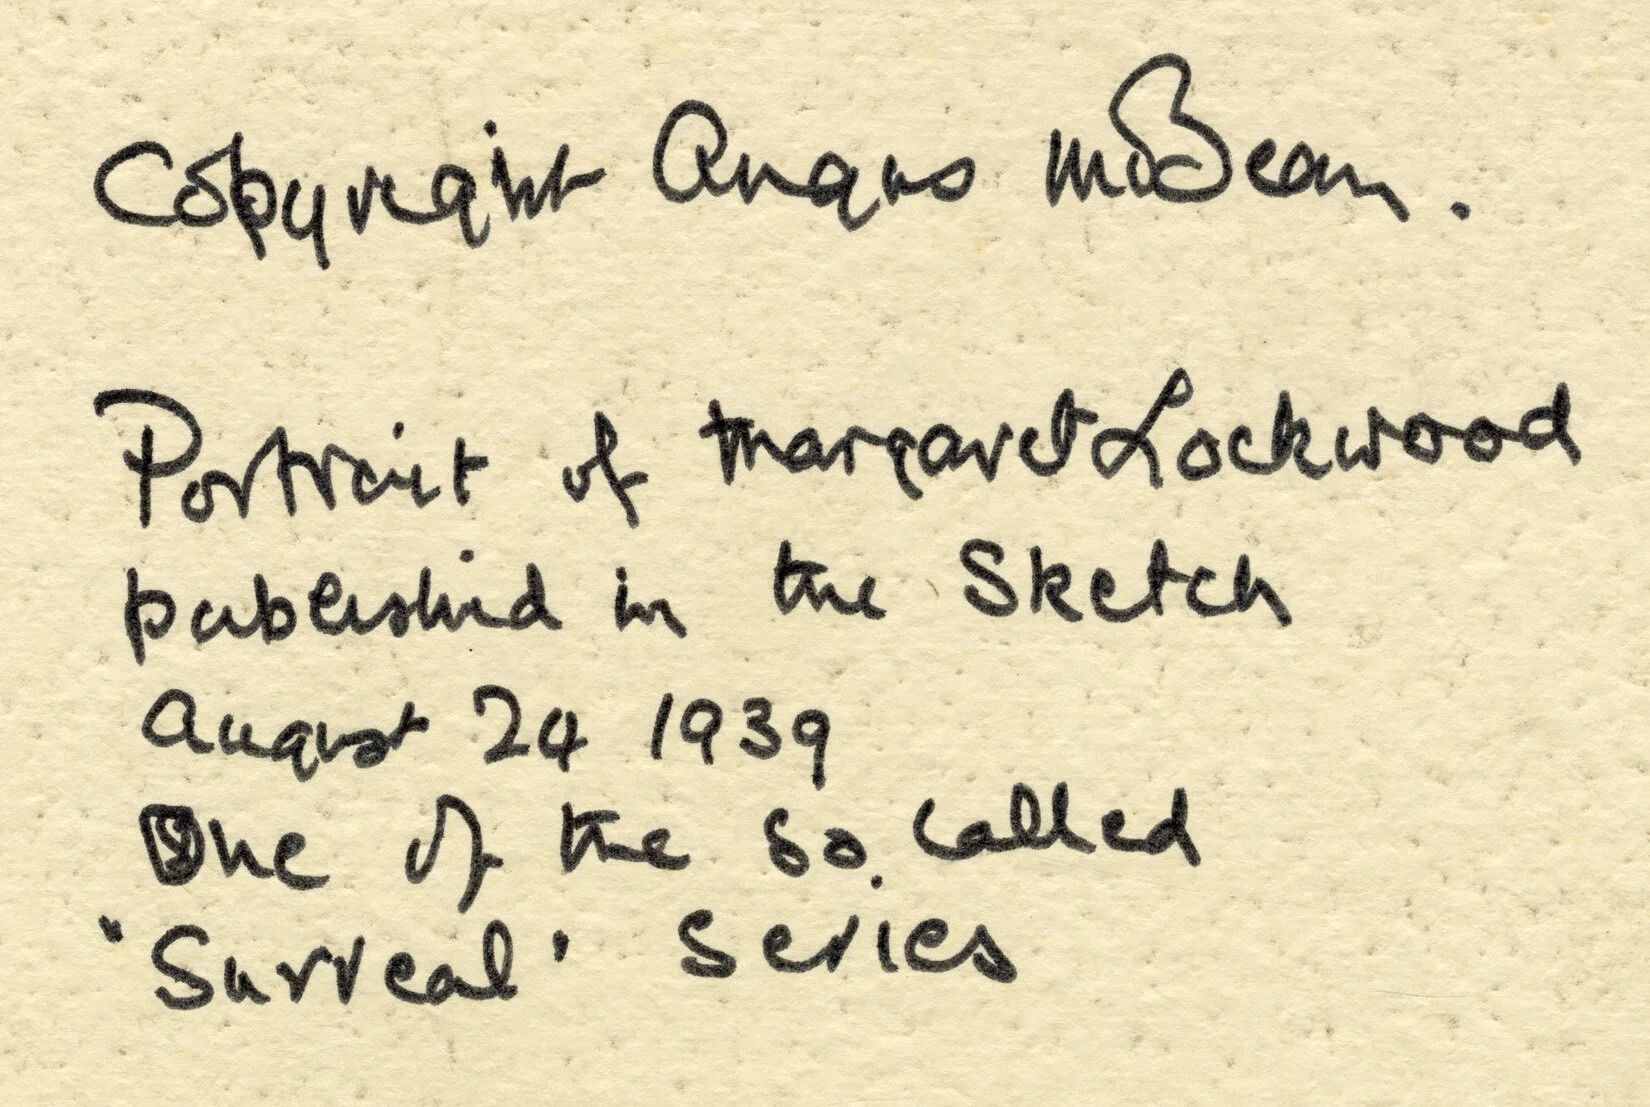 Copyright Angus McBean.
Portrait of Margaret Lockwood
published in the Sketch
August 24 1939
One of the so. called
'Surreal' Series